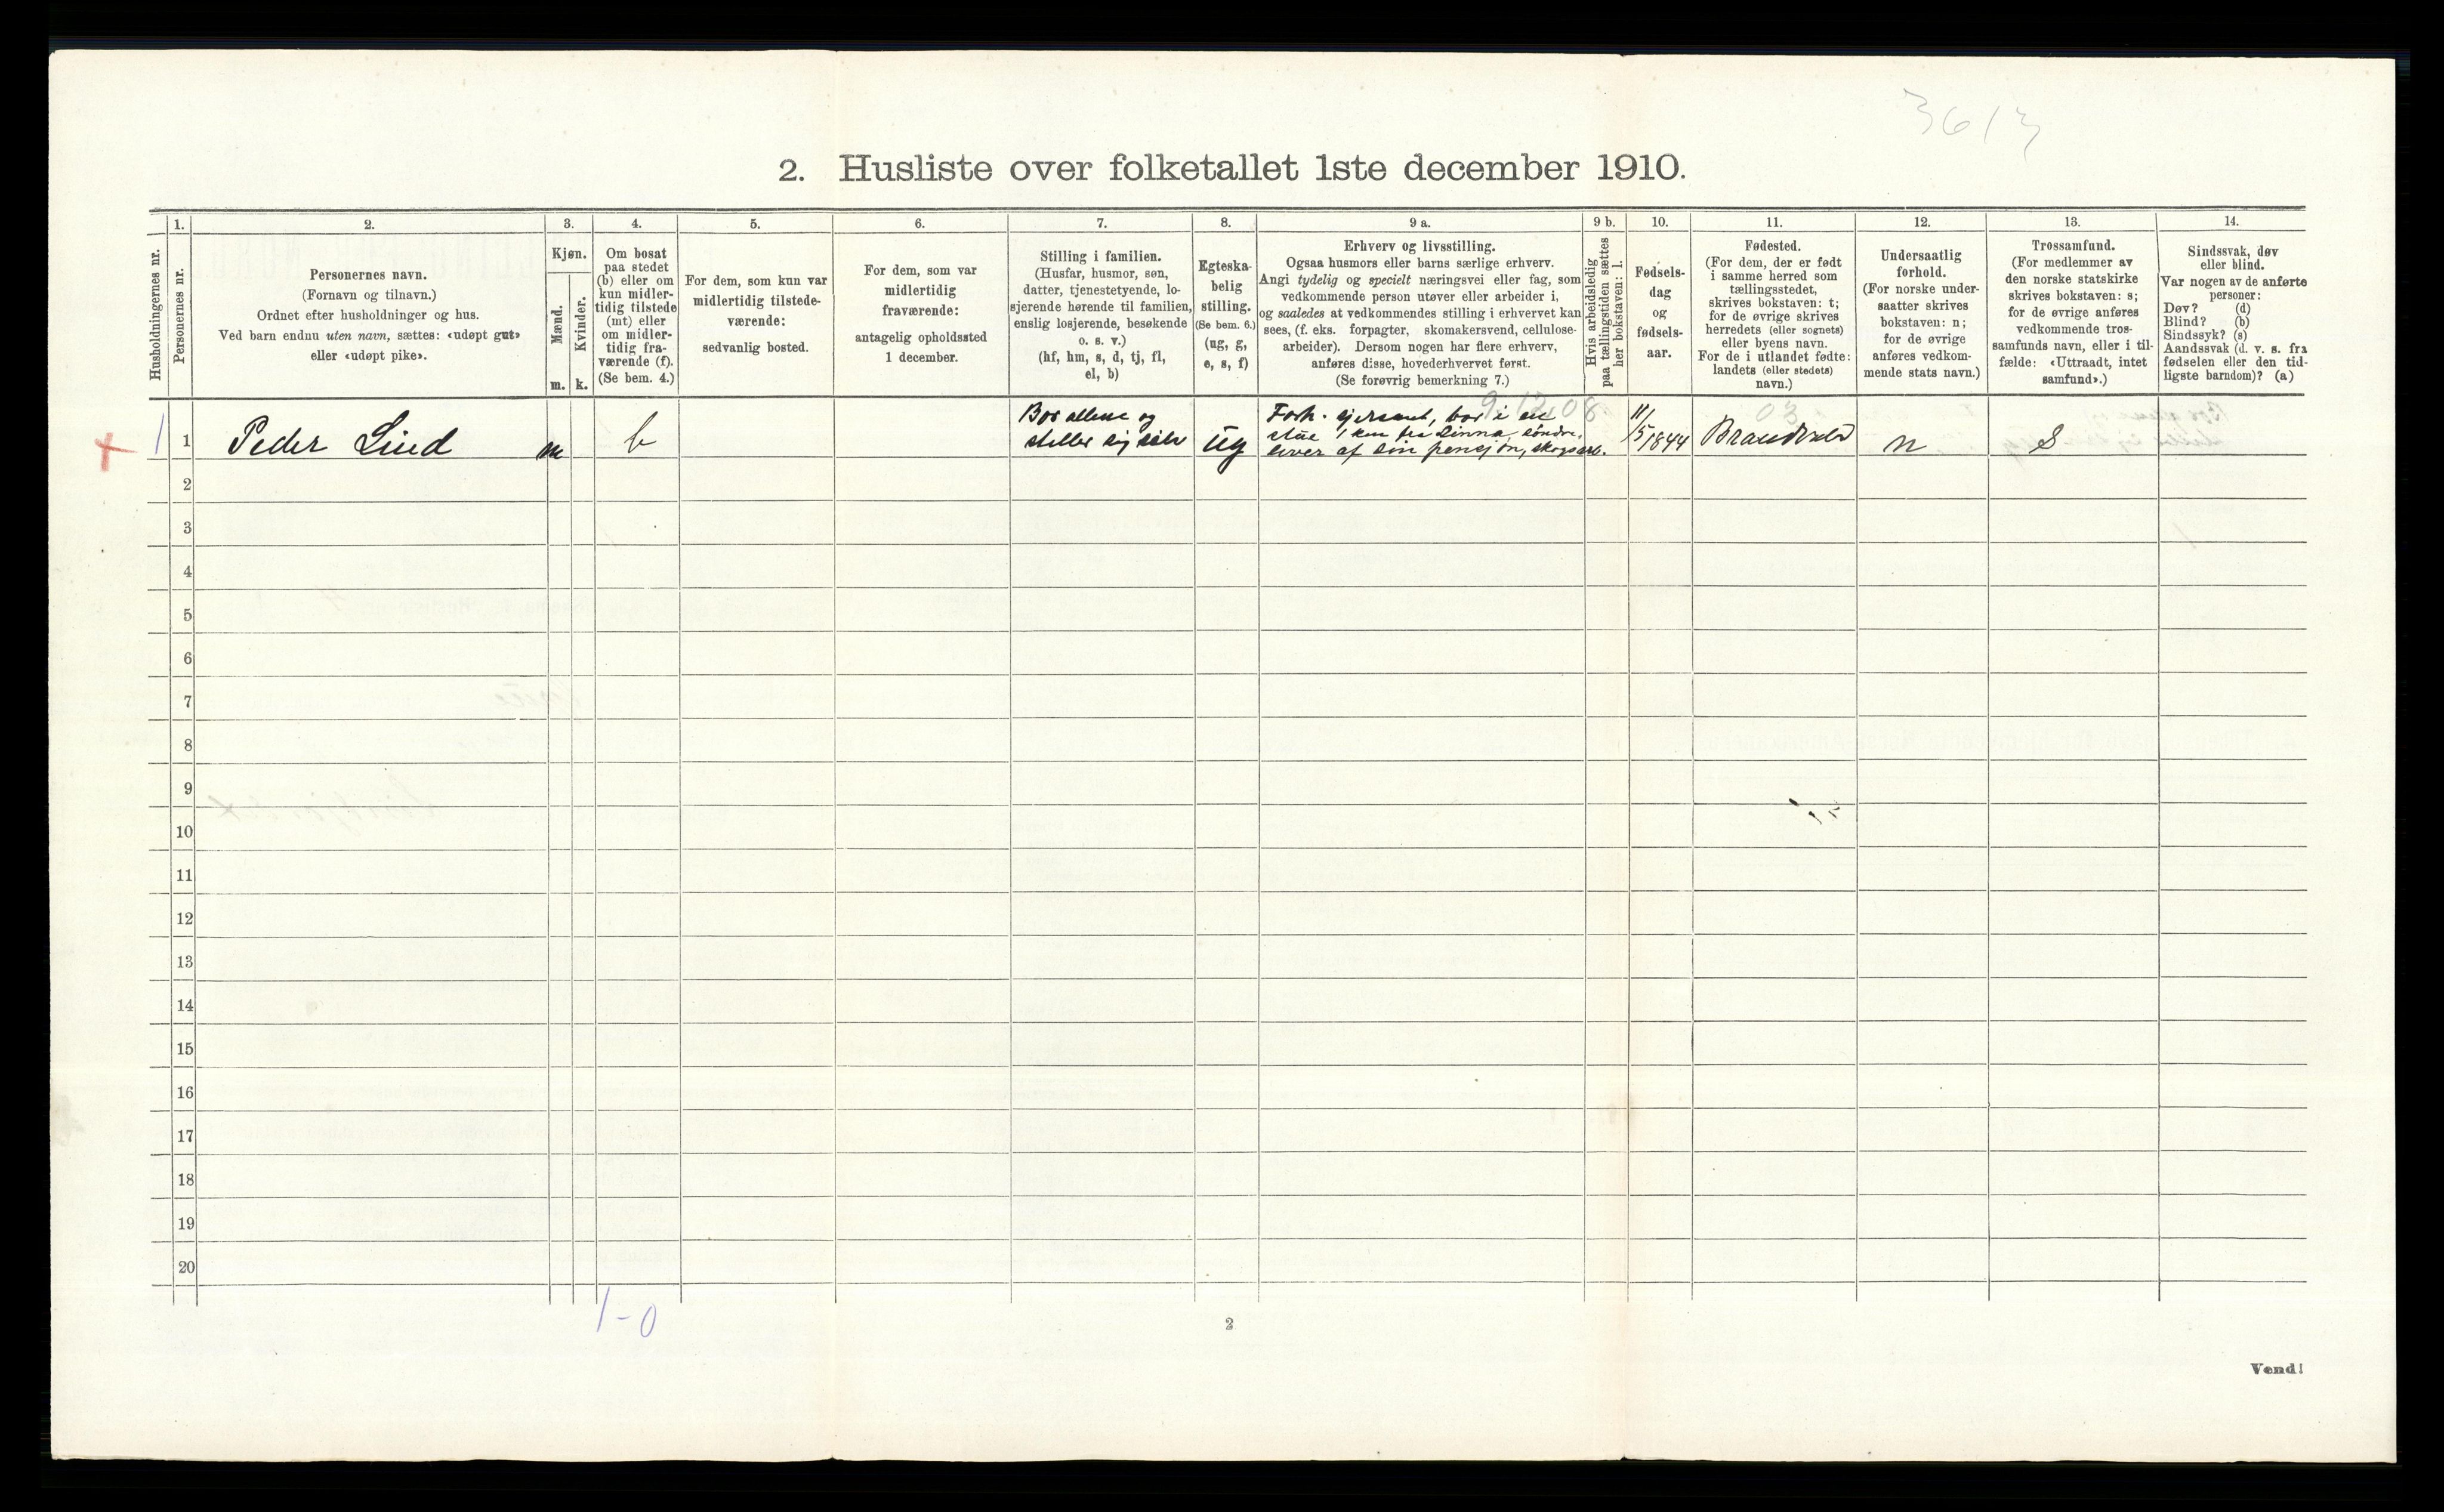 3613
2. Husliste over folketallet 1ste december 1910.
Husholdningernes nr.
1.
Personernes nr.
2.
Personernes navn.
(Fornavn og tilnavn.)
Ordnet efter husholdninger og hus.
Ved barn endnu uten navn, sættes: «udøpt gut»
eller «udøpt pike».
3.
Kjøn.
Mænd.
Kvinder.
m. k.
4.
Om bosat
paa stedet
(b) eller om
kun midler-
tidig tilstede
(mt) eller
om midler-
tidig fra-
værende (f).
(Se bem. 4.)
5.
For dem, som kun var
midlertidig tilstede-
værende:
sedvanlig bosted.
6.
For dem, som var
midlertidig
fraværende:
antagelig opholdssted
1 december.
7.
Stilling i familien.
(Husfar, husmor, søn,
datter, tjenestetyende, lo-
sjerende hørende til familien,
enslig losjerende, besøkende
o. s. v.)
(hf, hm, s, d, tj, fl,
el, b)
8.
Egteska-
belig
stilling.
(Se bem. 6.)
(ug, g,
e, s, f)
9 a.
Erhverv og livsstilling.
Ogsaa husmors eller barns særlige erhverv.
Angi tydelig og specielt næringsvei eller fag, som
vedkommende person utøver eller arbeider i,
og saaledes at vedkommendes stilling i erhvervet kan
sees, (f. eks. forpagter, skomakersvend, cellulose-
arbeider). Dersom nogen har flere erhverv,
anføres disse, hovederhvervet først.
(Se forøvrig bemerkning 7.)
9 b.
Hvis arbeidsledig
paa tællingstiden sættes
her bokstaven: l.
10.
Fødsels-
dag
og
fødsels-
aar.
11.
Fødested.
(For dem, der er født
i samme herred som
tællingsstedet,
skrives bokstaven: t;
for de øvrige skrives
herredets (eller sognets)
eller byens navn.
For de i utlandet fødte:
landets (eller stedets)
navn.)
12.
Undersaatlig
forhold.
(For norske under-
saatter skrives
bokstaven: n;
for de øvrige
anføres vedkom-
mende stats navn.)
13.
Trossamfund.
(For medlemmer av
den norske statskirke
skrives bokstaven: s;
for de øvrige anføres
vedkommende tros-
samfunds navn, eller i til-
fælde: «Uttraadt, intet
samfund».)
14.
Sindssvak, døv
eller blind.
Var nogen av de anførte
personer:
Døv? (d)
Blind? (b)
Sindssyk? (s)
Aandssvak (d. v. s. fra
fødselen eller den tid-
ligste barndom)? (a)
1 1 Peder Lind m b
Bor allene og
steller sig selv
ug
9.12.08
Forh. sjersant, bor i en
stue 1 km fra Linna, søndre,
lever af sin pensjon, skogsarb.
11/5 1844
03
Brandvold n S
2
3
4
5
6
7
8
9
10
11
12
13
14
15
16
17
18
19
20
1-0
2
Vend!